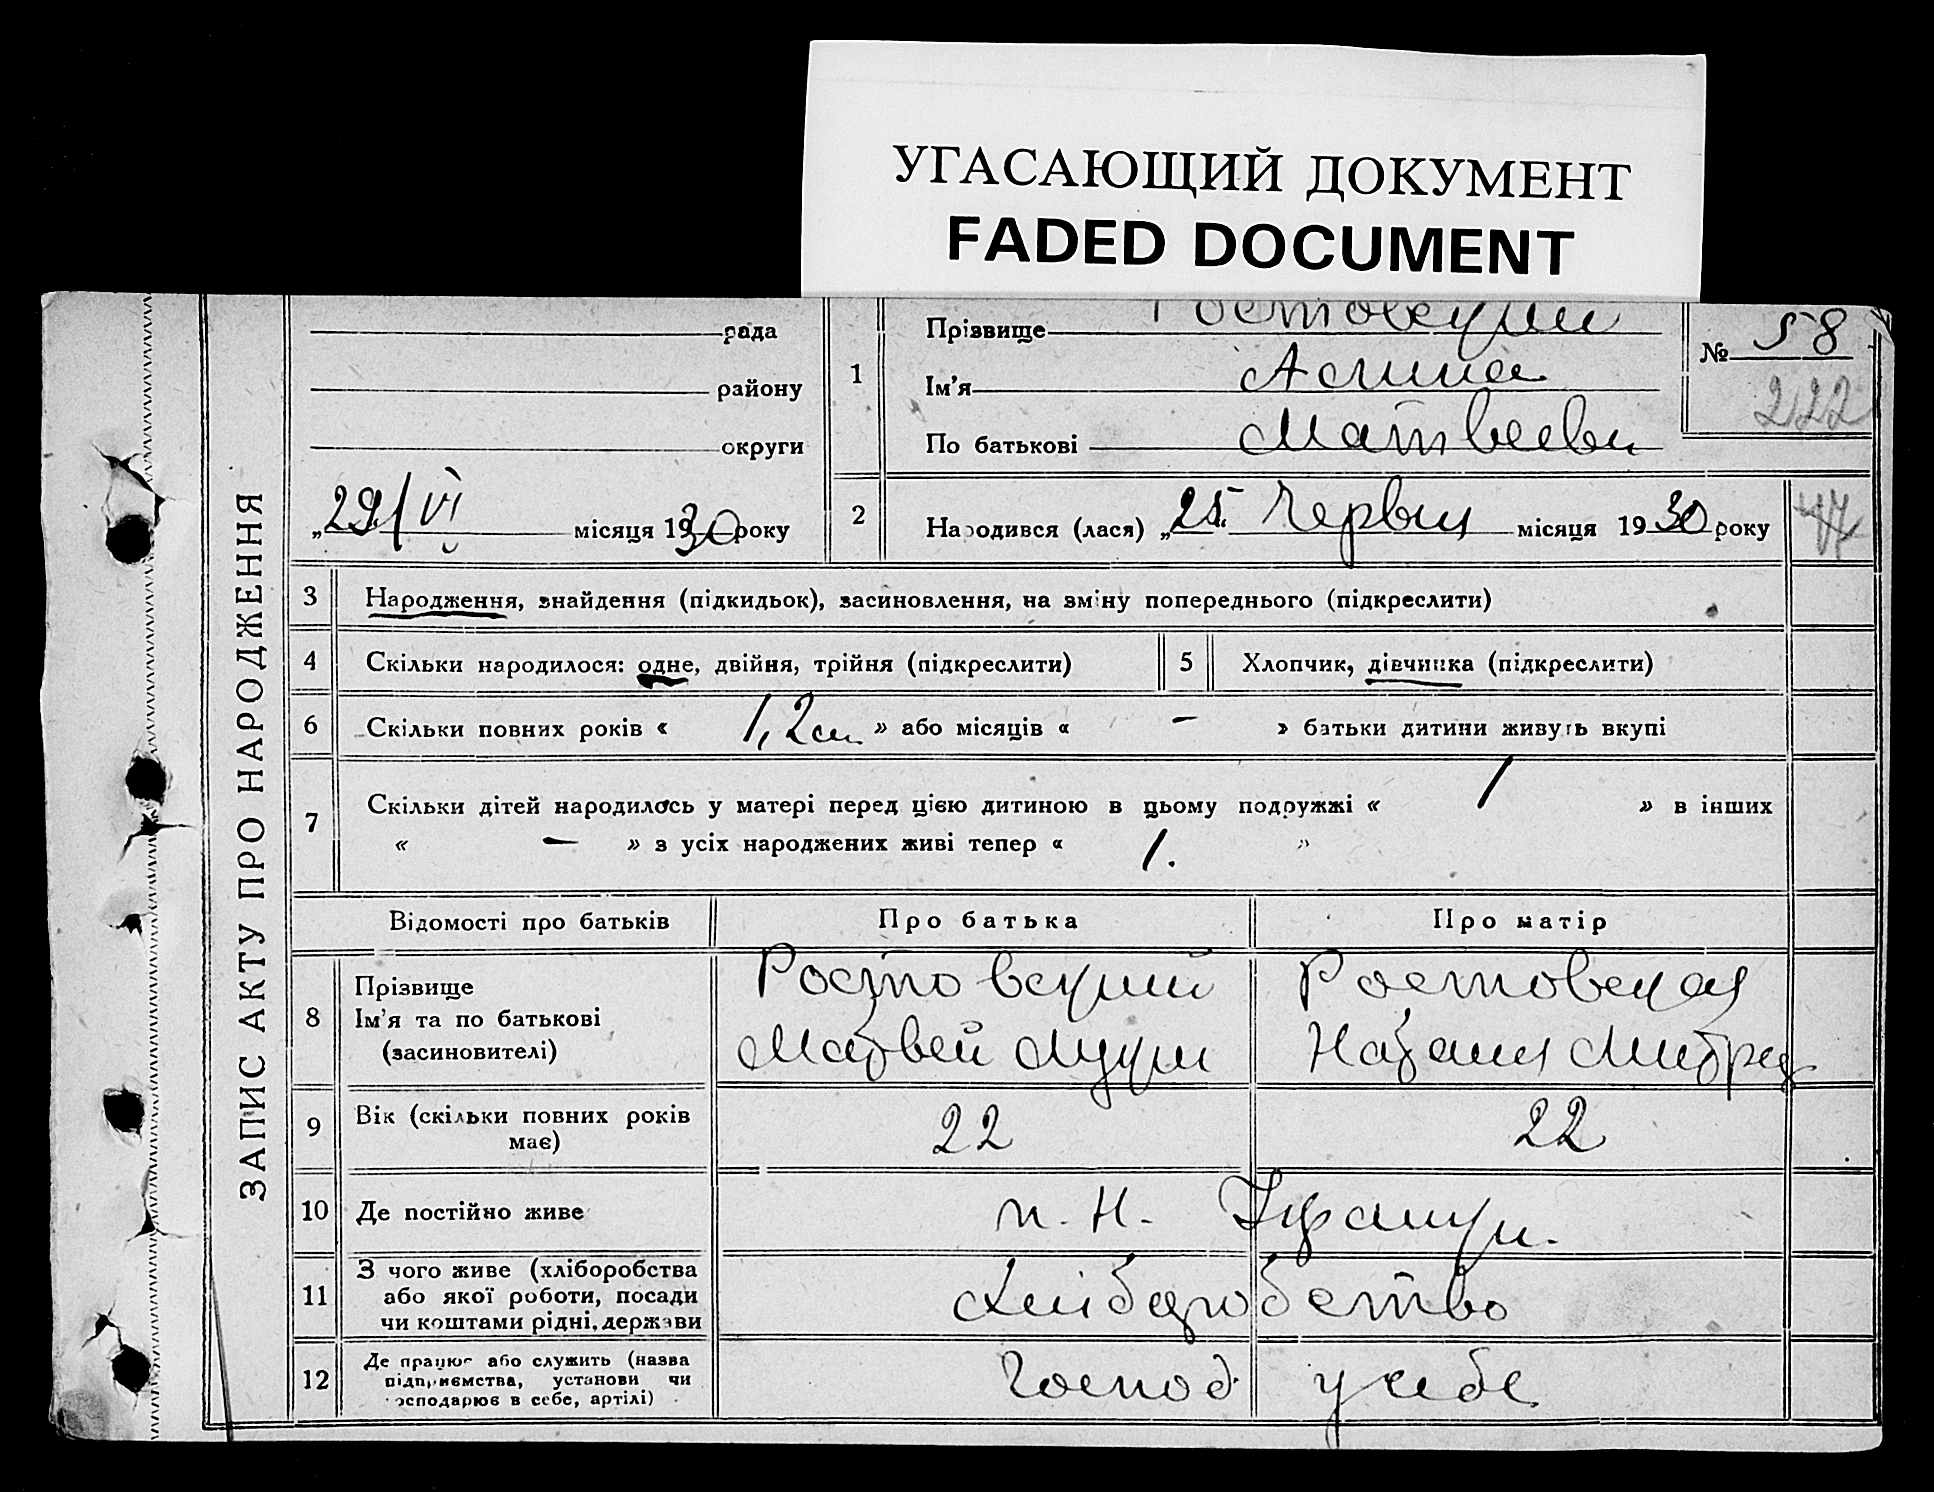 УГАСАЮЩИЙ ДОКУМЕНТ
FADED DOCUMENT
ЗАПИС АКТУ ПРО НАРОДЖЕННЯ
рада
району
округи
„29/VI місяця 1930 року
1
Прізвище
Ім'я
По батькові
№ 58
222
2
Народився (лася) „25. Червня місяця 1930 року
3
Народження, знайдення (підкидьок), засиновлення, на зміну попереднього (підкреслити)
4
Скільки народилося: одне, двійня, трійня (підкреслити)
5
Хлопчик, дівчинка (підкреслити)
6
Скільки повних років « 1, 2 » або місяців « – » батьки дитини живуть вкупі
7
Скільки дітей народилось у матері перед цією дитиною в цьому подружжі « 1 » в інших
« – » з усіх народжених живі тепер « 1. »
Відомості про батьків
Про батька
Про матір
8
Прізвище
Ім'я та по батькові
(засиновителі)
Ростовский
Матвей
Ростовская
Наталия
9
Вік (скільки повних років
має)
22
22
10
Де постійно живе
п. Н.
11
З чого живе (хліборобства
або якої роботи, посади
чи коштами рідні, держави
Хліборобство
12
Де працює або служить (назва
підприємства, установи чи
господарює в себе, артілі)
Господ. у себе